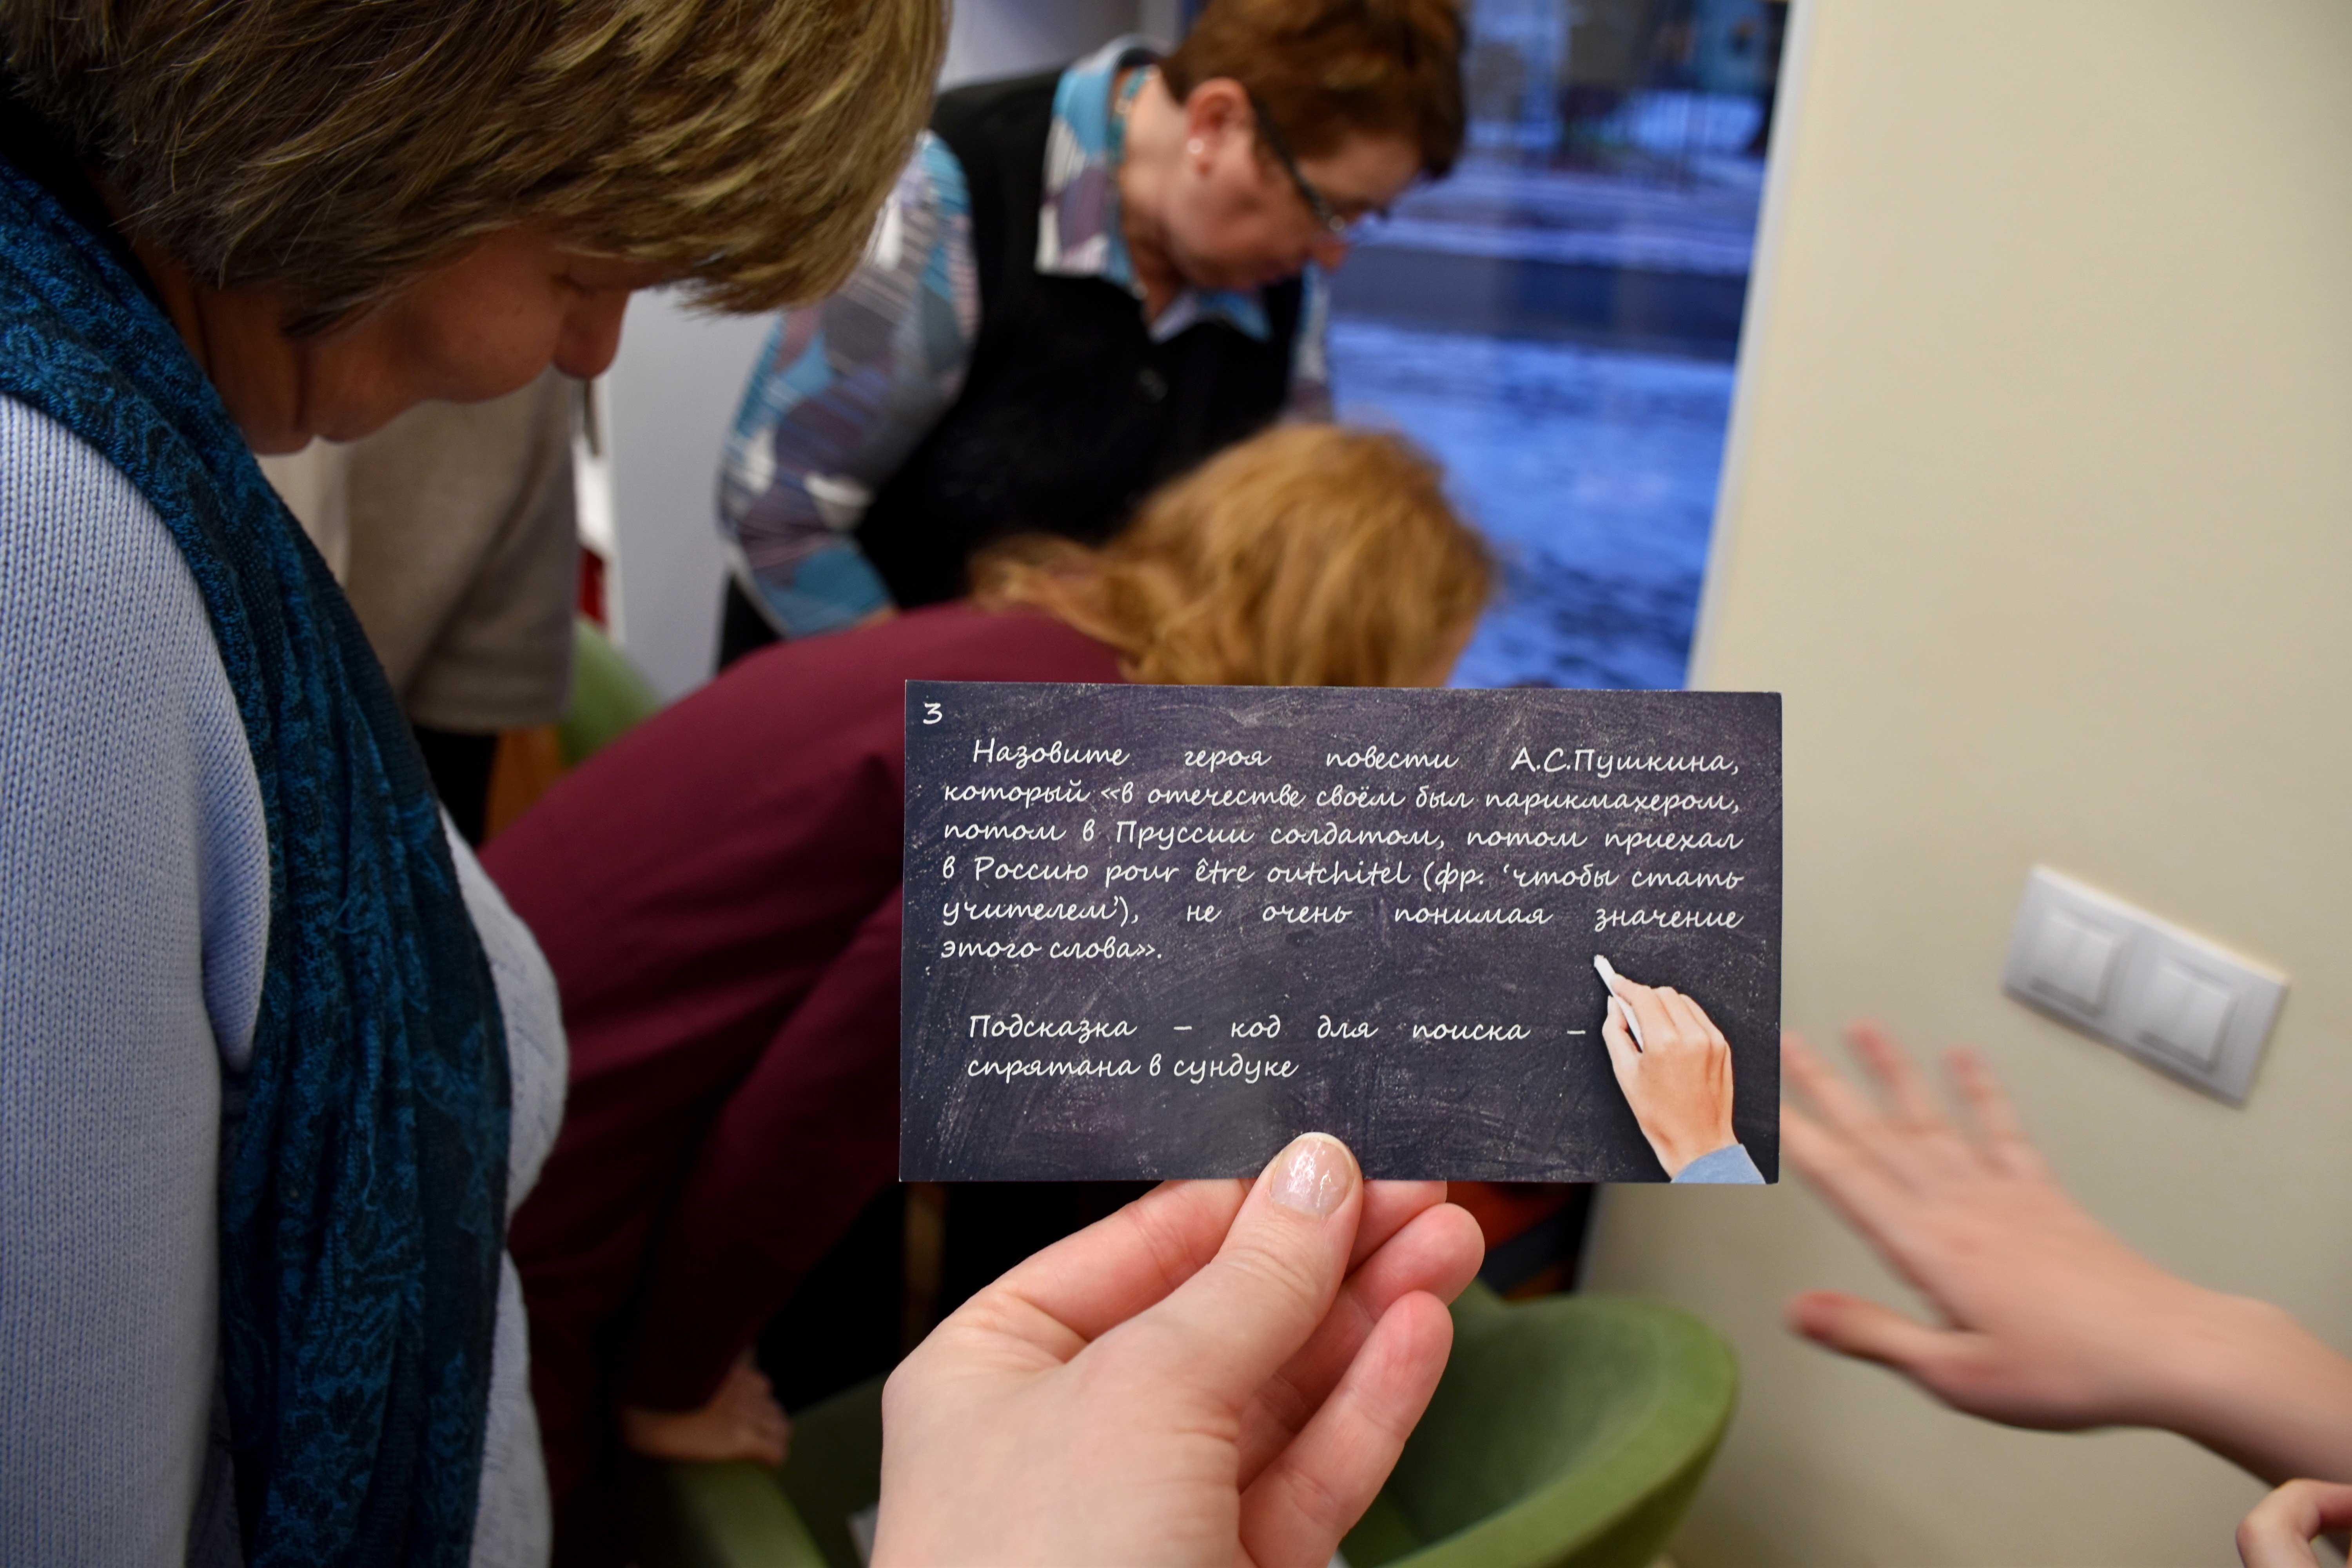 3
Назовите героя повести А.С.Пушкина,
который «в отечестве своём был парикмахером,
потом в Пруссии солдатом, потом приехал
в Россию pour être outchitel (фр. ‘чтобы стать
учителем’), не очень понимая значение
этого слова».
Подсказка – код для поиска –
спрятана в сундуке